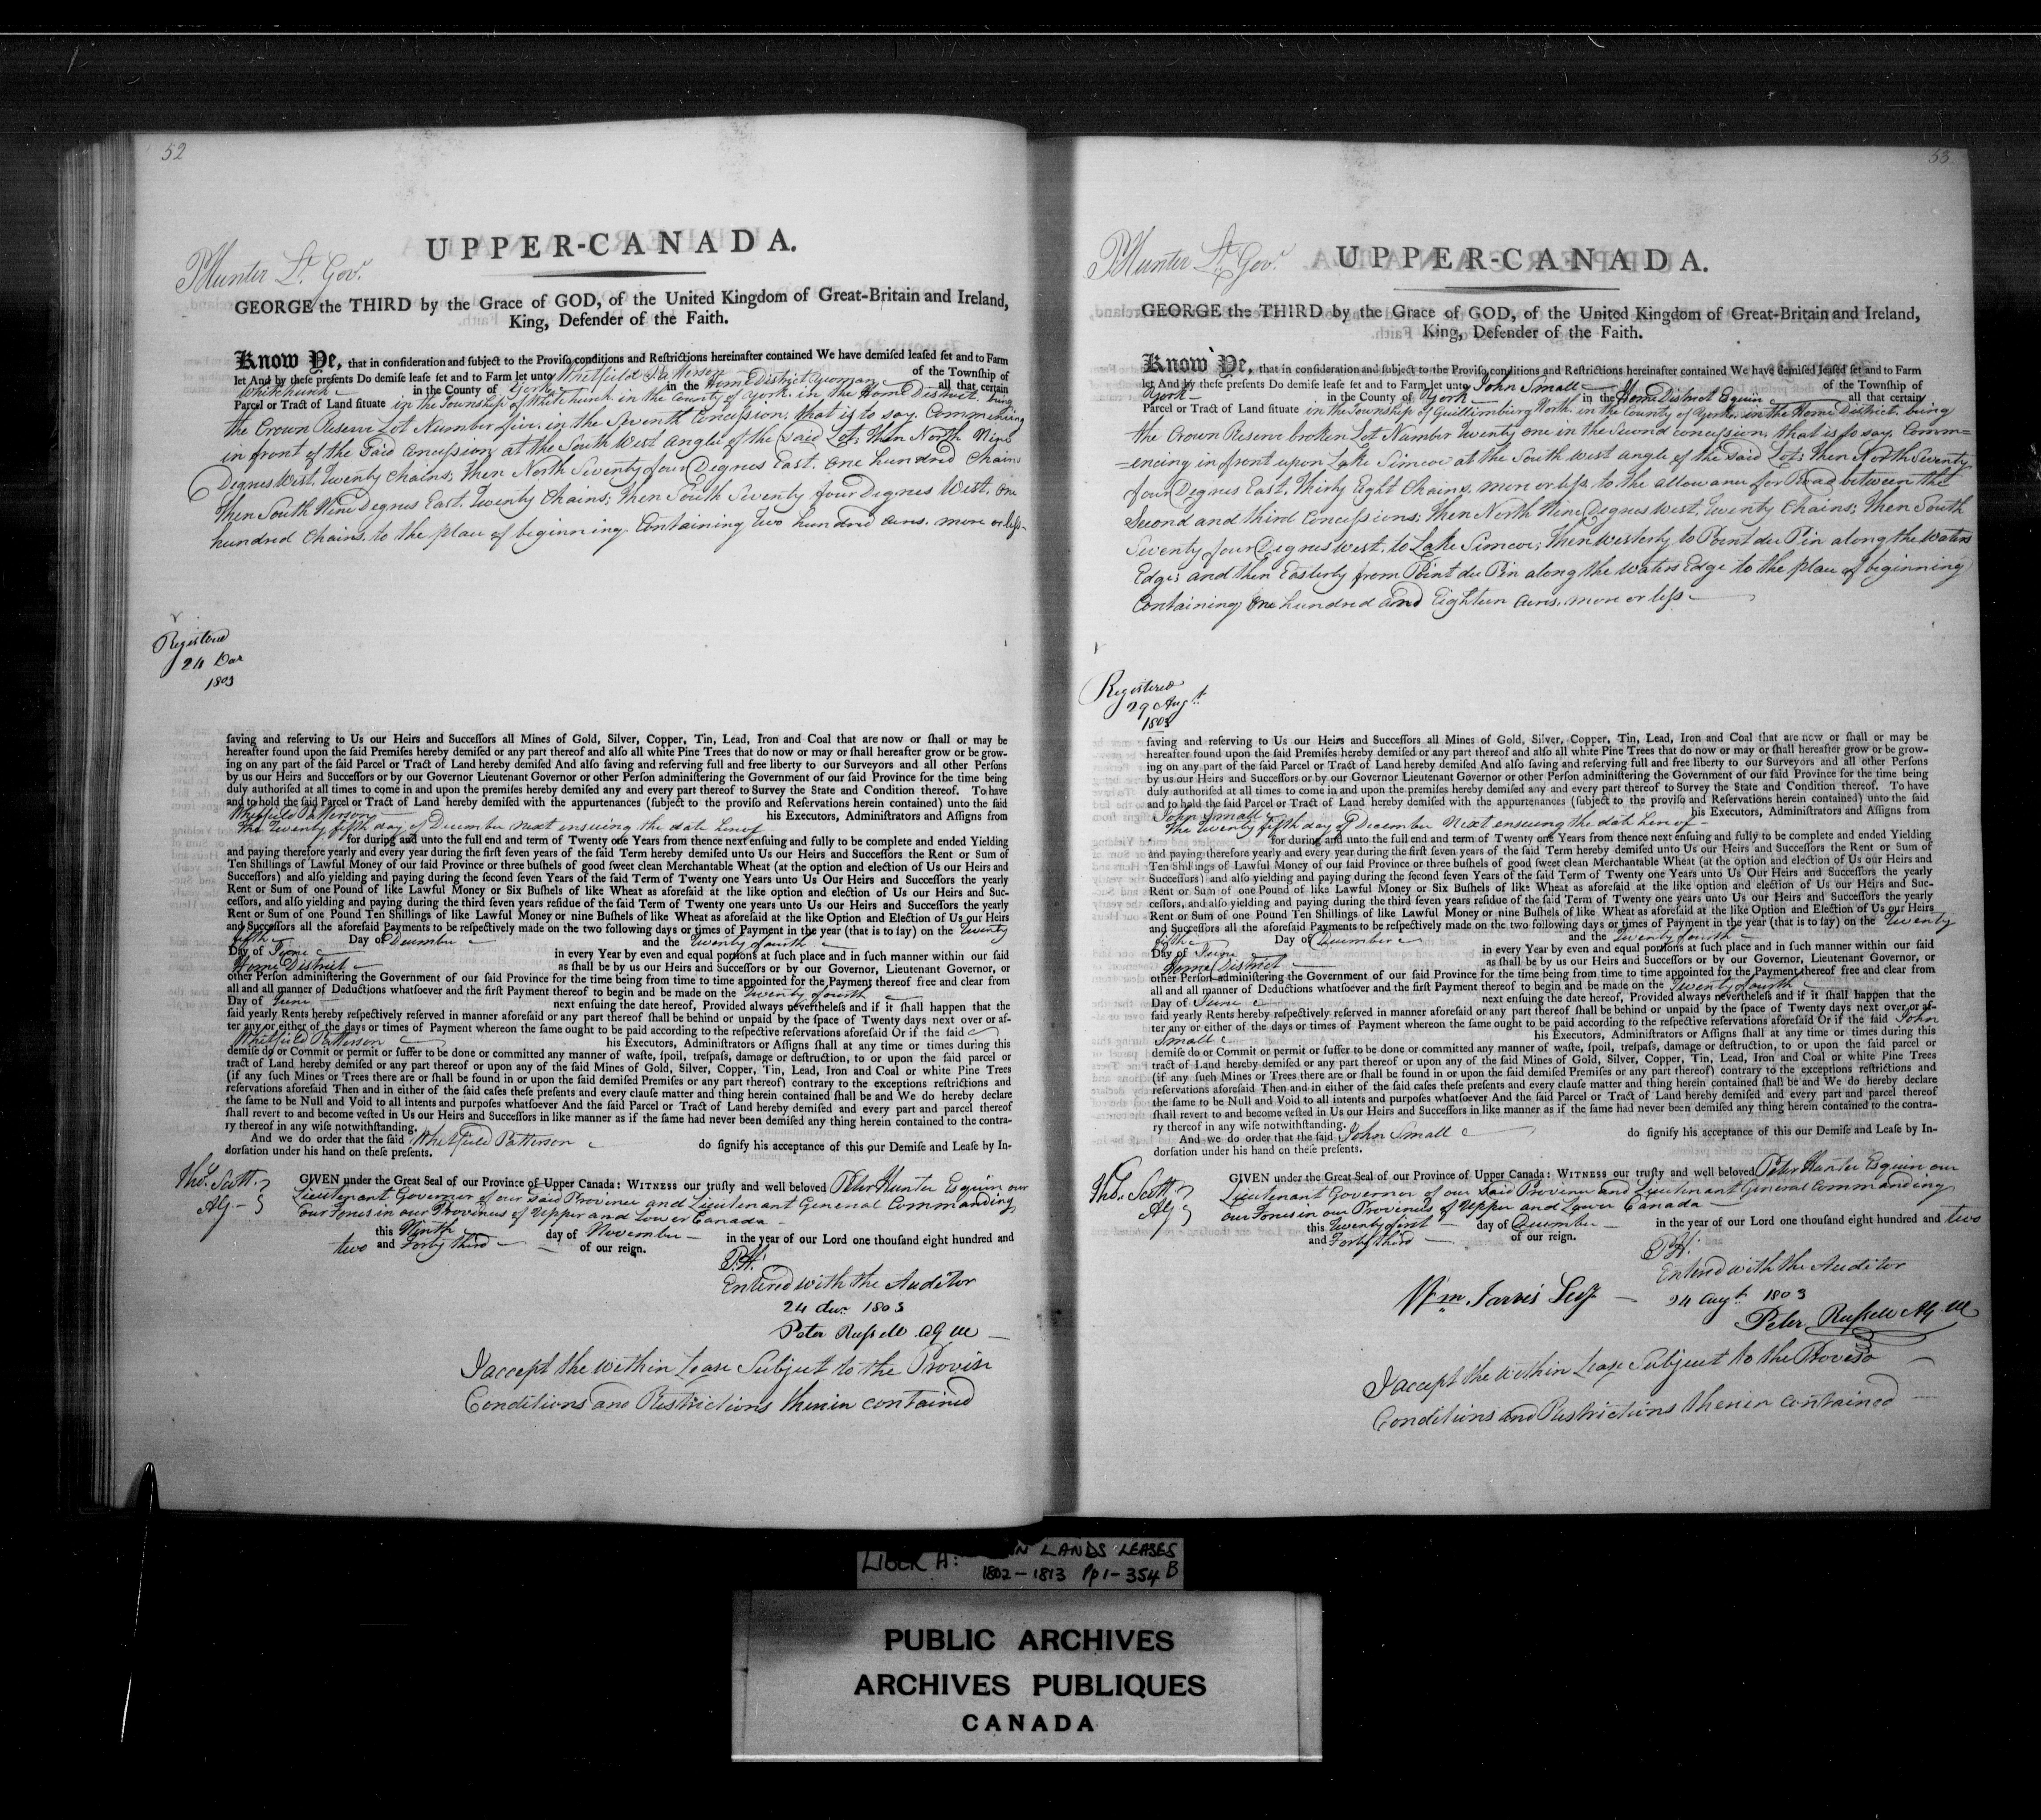 52
UPPER-CANADA.
PHunter Lt. Govr.
GEORGE the THIRD by the Grace of GOD, of the United Kingdom of Great-Britain and Ireland,
King, Defender of the Faith.
Know Ye, that in consideration and subject to the Proviso conditions and Restrictions hereinafter contained We have demised leased set and to Farm
let And by these presents Do demise lease set and to Farm let unto Whitfield Patterson of the Township of
Whitchurch in the County of York in the Home District Yeoman all that certain
Parcel or Tract of Land situate in the Township of Whitchurch in the County of York in the Home District. being
the Crown Reserve Lot Number five in the Seventh Concession, that is to say, Commencing
in front of the said Concession at the South West angle of the said Lot; Then North Nine
Degrees West, Twenty Chains; Then North Seventy four Degrees East, One hundred Chains
Then South Nine Degrees East, Twenty Chains; Then South Seventy four Degrees West, One
hundred Chains, to the place of beginning. Containing two hundred acres, more or less-
Registered
24 Dcr
1803
saving and reserving to Us our Heirs and Successors all Mines of Gold, Silver, Copper, Tin, Lead, Iron and Coal that are now or shall or may be
hereafter found upon the said Premises hereby demised or any part thereof and also all white Pine Trees that do now or may or shall hereafter grow or be grow-
ing on any part of the said Parcel or Tract of Land hereby demised And also saving and reserving full and free liberty to our Surveyors and all other Persons
by us our Heirs and Successors or by our Governor Lieutenant Governor or other Person administering the Government of our said Province for the time being
duly authorised at all times to come in and upon the premises hereby demised any and every part thereof to Survey the State and Condition thereof. To have
and to hold the said Parcel or Tract of Land hereby demised with the appurtenances (subject to the proviso and Reservations herein contained) unto the said
Whitfield Patterson his Executors, Administrators and Assigns from
the Twenty fifth day of December next ensuing the date hereof
for during and unto the full end and term of Twenty one Years from thence next ensuing and fully to be complete and ended Yielding
and paying therefore yearly and every year during the first seven years of the said Term hereby demised unto Us our Heirs and Successors the Rent or Sum of
Ten Shillings of Lawful Money of our said Province or three bushels of good sweet clean Merchantable Wheat (at the option and election of Us our Heirs and
Successors) and also yielding and paying during the second seven Years of the said Term of Twenty one Years unto Us Our Heirs and Successors the yearly
Rent or Sum of one Pound of like Lawful Money or Six Bushels of like Wheat as aforesaid at the like option and election of Us our Heirs and Suc-
cessors, and also yielding and paying during the third seven years residue of the said Term of Twenty one years unto Us our Heirs and Successors the yearly
Rent or Sum of one Pound Ten Shillings of like Lawful Money or nine Bushels of like Wheat as aforesaid at the like Option and Election of Us our Heirs
and Successors all the aforesaid Payments to be respectively made on the two following days or times of Payment in the year (that is to say) on the Twenty
fifth Day of December and the Twenty fourth
Day of June in every Year by even and equal portions at such place and in such manner within our said
Home District as shall be by us our Heirs and Successors or by our Governor, Lieutenant Governor, or
other Person administering the Government of our said Province for the time being from time to time appointed for the Payment thereof free and clear from
all and all manner of Deductions whatsoever and the first Payment thereof to begin and be made on the Twenty fourth
Day of June next ensuing the date hereof, Provided always nevertheless and if it shall happen that the
said yearly Rents hereby respectively reserved in manner aforesaid or any part thereof shall be behind or unpaid by the space of Twenty days next over or af-
ter any or either of the days or times of Payment whereon the same ought to be paid according to the respective reservations aforesaid Or if the said
Whitfield Patterson his Executors, Administrators or Assigns shall at any time or times during this
demise do or Commit or permit or suffer to be done or committed any manner of waste, spoil, trespass, damage or destruction, to or upon the said parcel or
tract of Land hereby demised or any part thereof or upon any of the said Mines of Gold, Silver, Copper, Tin, Lead, Iron and Coal or white Pine Trees
(if any such Mines or Trees there are or shall be found in or upon the said demised Premises or any part thereof) contrary to the exceptions restrictions and
reservations aforesaid Then and in either of the said cases these presents and every clause matter and thing herein contained shall be and We do hereby declare
the same to be Null and Void to all intents and purposes whatsoever And the said Parcel or Tract of Land hereby demised and every part and parcel thereof
shall revert to and become vested in Us our Heirs and Successors in like manner as if the same had never been demised any thing herein contained to the contra-
ry thereof in any wise notwithstanding.
And we do order that the said Whitfield Patterson do signify his acceptance of this our Demise and Lease by In-
dorsation under his hand on these presents.
Thos. Scott
Ag.
GIVEN under the Great Seal of our Province of Upper Canada: WITNESS our trusty and well beloved Peter Hunter Esquire our
Lieutenant Governor of our said Province and Lieutenant General Commanding
our Forces in our Provinces of Upper and Lower Canada
this Ninth day of November in the year of our Lord one thousand eight hundred and
two and Forty third of our reign.
P.H.
Entered with the Auditor
24 Decr. 1803
Peter Russell AGM
I accept the within Lease Subject to the Proviso
Conditions and Restrictions therein contained
53
UPPER-CANADA.
PHunter Lt. Govr.
GEORGE the THIRD by the Grace of GOD, of the United Kingdom of Great-Britain and Ireland,
King, Defender of the Faith.
Know Ye, that in consideration and subject to the Proviso conditions and Restrictions hereinafter contained We have demised leased set and to Farm
let And by these presents Do demise lease set and to Farm let unto John Small of the Township of
York in the County of York in the Home District Esquire all that certain
Parcel or Tract of Land situate in the Township of Guillimburg North in the County of York, in the Home District, being
the Crown Reserve broken Lot Number Twenty one in the Second concession, that is to say, Comm=
=encing in front upon Lake Simcoe at the South west angle of the said Lot; Then North Seventy
four Degrees East, Thirty Eight Chains, more or less, to the allowance for Road between the
Second and third Concessions; Then North Nine Degrees West, Twenty Chains; Then South
Seventy four Degrees West, to Lake Simcoe; Then westerly to Point du Pin along the waters
Edge; and then Easterly from Point du Pin along the Waters Edge to the place of beginning
Containing One hundred and Eighteen acres, more or less
Registered
29 Augt.
1803
saving and reserving to Us our Heirs and Successors all Mines of Gold, Silver, Copper, Tin, Lead, Iron and Coal that are now or shall or may be
hereafter found upon the said Premises hereby demised or any part thereof and also all white Pine Trees that do now or may or shall hereafter grow or be grow-
ing on any part of the said Parcel or Tract of Land hereby demised And also saving and reserving full and free liberty to our Surveyors and all other Persons
by us our Heirs and Successors or by our Governor Lieutenant Governor or other Person administering the Government of our said Province for the time being
duly authorised at all times to come in and upon the premises hereby demised any and every part thereof to Survey the State and Condition thereof. To have
and to hold the said Parcel or Tract of Land hereby demised with the appurtenances (subject to the proviso and Reservations herein contained) unto the said
John Small his Executors, Administrators and Assigns from
the Twenty fifth day of December Next ensuing the date hereof
for during and unto the full end and term of Twenty one Years from thence next ensuing and fully to be complete and ended Yielding
and paying therefore yearly and every year during the first seven years of the said Term hereby demised unto Us our Heirs and Successors the Rent or Sum of
Ten Shillings of Lawful Money of our said Province or three bushels of good sweet clean Merchantable Wheat (at the option and election of Us our Heirs and
Successors) and also yielding and paying during the second seven Years of the said Term of Twenty one Years unto Us Our Heirs and Successors the yearly
Rent or Sum of one Pound of like Lawful Money or Six Bushels of like Wheat as aforesaid at the like option and election of Us our Heirs and Suc-
cessors, and also yielding and paying during the third seven years residue of the said Term of Twenty one years unto Us our Heirs and Successors the yearly
Rent or Sum of one Pound Ten Shillings of like Lawful Money or nine Bushels of like Wheat as aforesaid at the like Option and Election of Us our Heirs
and Successors all the aforesaid Payments to be respectively made on the two following days or times of Payment in the year (that is to say) on the Twenty
fifth Day of December and the Twenty fourth
Day of June in every Year by even and equal portions at such place and in such manner within our said
Home District as shall be by us our Heirs and Successors or by our Governor, Lieutenant Governor, or
other Person administering the Government of our said Province for the time being from time to time appointed for the Payment thereof free and clear from
all and all manner of Deductions whatsoever and the first Payment thereof to begin and be made on the Twenty fourth
Day of June next ensuing the date hereof, Provided always nevertheless and if it shall happen that the
said yearly Rents hereby respectively reserved in manner aforesaid or any part thereof shall be behind or unpaid by the space of Twenty days next over or af-
ter any or either of the days or times of Payment whereon the same ought to be paid according to the respective reservations aforesaid Or if the said John
Small his Executors, Administrators or Assigns shall at any time or times during this
demise do or Commit or permit or suffer to be done or committed any manner of waste, spoil, trespass, damage or destruction, to or upon the said parcel or
tract of Land hereby demised or any part thereof or upon any of the said Mines of Gold, Silver, Copper, Tin, Lead, Iron and Coal or white Pine Trees
(if any such Mines or Trees there are or shall be found in or upon the said demised Premises or any part thereof) contrary to the exceptions restrictions and
reservations aforesaid Then and in either of the said cases these presents and every clause matter and thing herein contained shall be and We do hereby declare
the same to be Null and Void to all intents and purposes whatsoever And the said Parcel or Tract of Land hereby demised and every part and parcel thereof
shall revert to and become vested in Us our Heirs and Successors in like manner as if the same had never been demised any thing herein contained to the contra-
ry thereof in any wise notwithstanding.
And we do order that the said John Small do signify his acceptance of this our Demise and Lease by In-
dorsation under his hand on these presents.
Thos. Scott
Ag
GIVEN under the Great Seal of our Province of Upper Canada: WITNESS our trusty and well beloved Peter Hunter Esquire our
Lieutenant Governor of our said Province and Lieutenant General Commanding
our Forces in our Provinces of Upper and Lower Canada
this Twenty first day of December in the year of our Lord one thousand eight hundred and two
and Forty third of our reign.
P.H.
Entered with the Auditor
Wm Jarvis Secy 24 Augt. 1803
Peter Russell AGM
I accept the within Lease Subject to the Proviso
Conditions and Restrictions therein contained
LIBER A: LANDS LEASES
1802-1813 Pp 1-354 B
PUBLIC ARCHIVES
ARCHIVES PUBLIQUES
CANADA